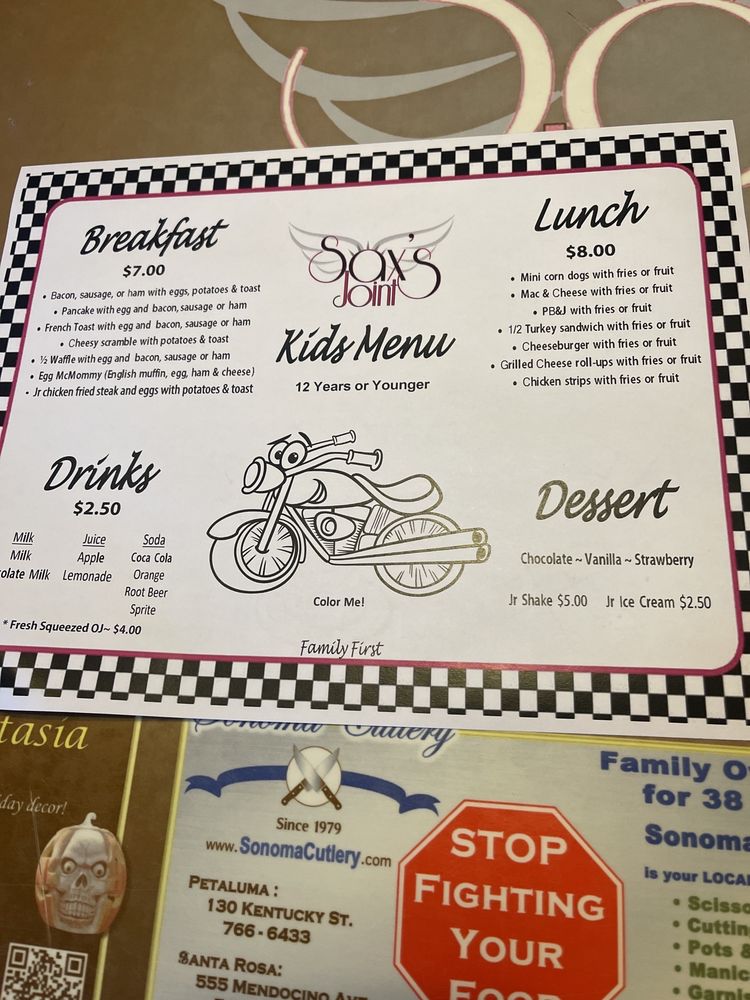 Breakfast
$7.00
• Bacon, sausage, or ham with eggs, potatoes & toast
• Pancake with egg and bacon, sausage or ham
• French Toast with egg and bacon, sausage or ham
• Cheesy scramble with potatoes & toast
• ½ Waffle with egg and bacon, sausage or ham
• Egg McMommy (English muffin, egg, ham & cheese)
• Jr chicken fried steak and eggs with potatoes & toast
Sax's
Joint
Kids Menu
12 Years or Younger
Lunch
$8.00
• Mini corn dogs with fries or fruit
• Mac & Cheese with fries or fruit
• PB&J with fries or fruit
• 1/2 Turkey sandwich with fries or fruit
• Cheeseburger with fries or fruit
• Grilled Cheese roll-ups with fries or fruit
• Chicken strips with fries or fruit
Drinks
$2.50
Milk Juice Soda
Milk Apple Coca Cola
olate Milk Lemonade Orange
Root Beer
Sprite
* Fresh Squeezed OJ~ $4.00
Color Me!
Family First
Dessert
Chocolate ~ Vanilla ~ Strawberry
Jr Shake $5.00 Jr Ice Cream $2.50
tasia
day decor!
Sonoma Cutlery
Since 1979
www.SonomaCutlery.com
PETALUMA :
130 KENTUCKY ST.
766-6433
SANTA ROSA:
555 MENDOCINO AVE
STOP
FIGHTING
YOUR
FOOD
Family O
for 38
Sonoma
is your LOCA
• Scisso
• Cuttin
• Pots &
• Manic
• Garni